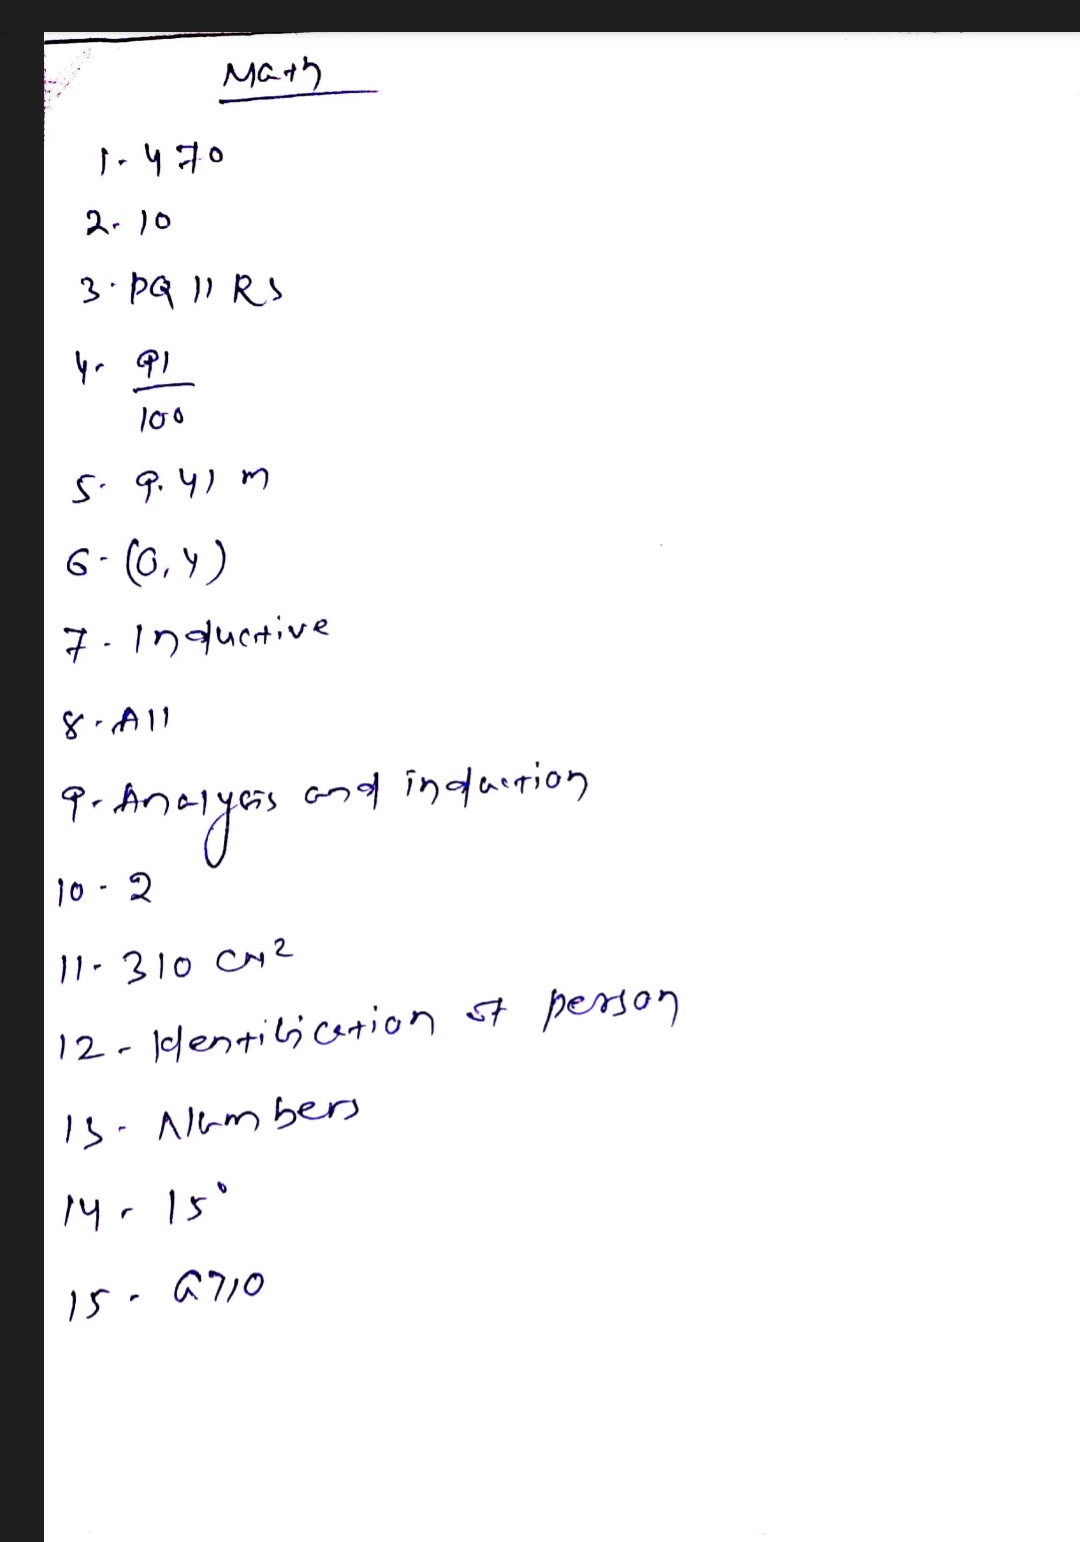 Math
1. 470
2. 10
3. PQ || RS
4. 91/100
5. 9.41 m
6 - (0, 4)
7 - Inductive
8. All
9. Analysis and induction
10 - 2
11 - 310 cm²
12 - Identification of person
13 - Numbers
14 - 15°
15 - a>10